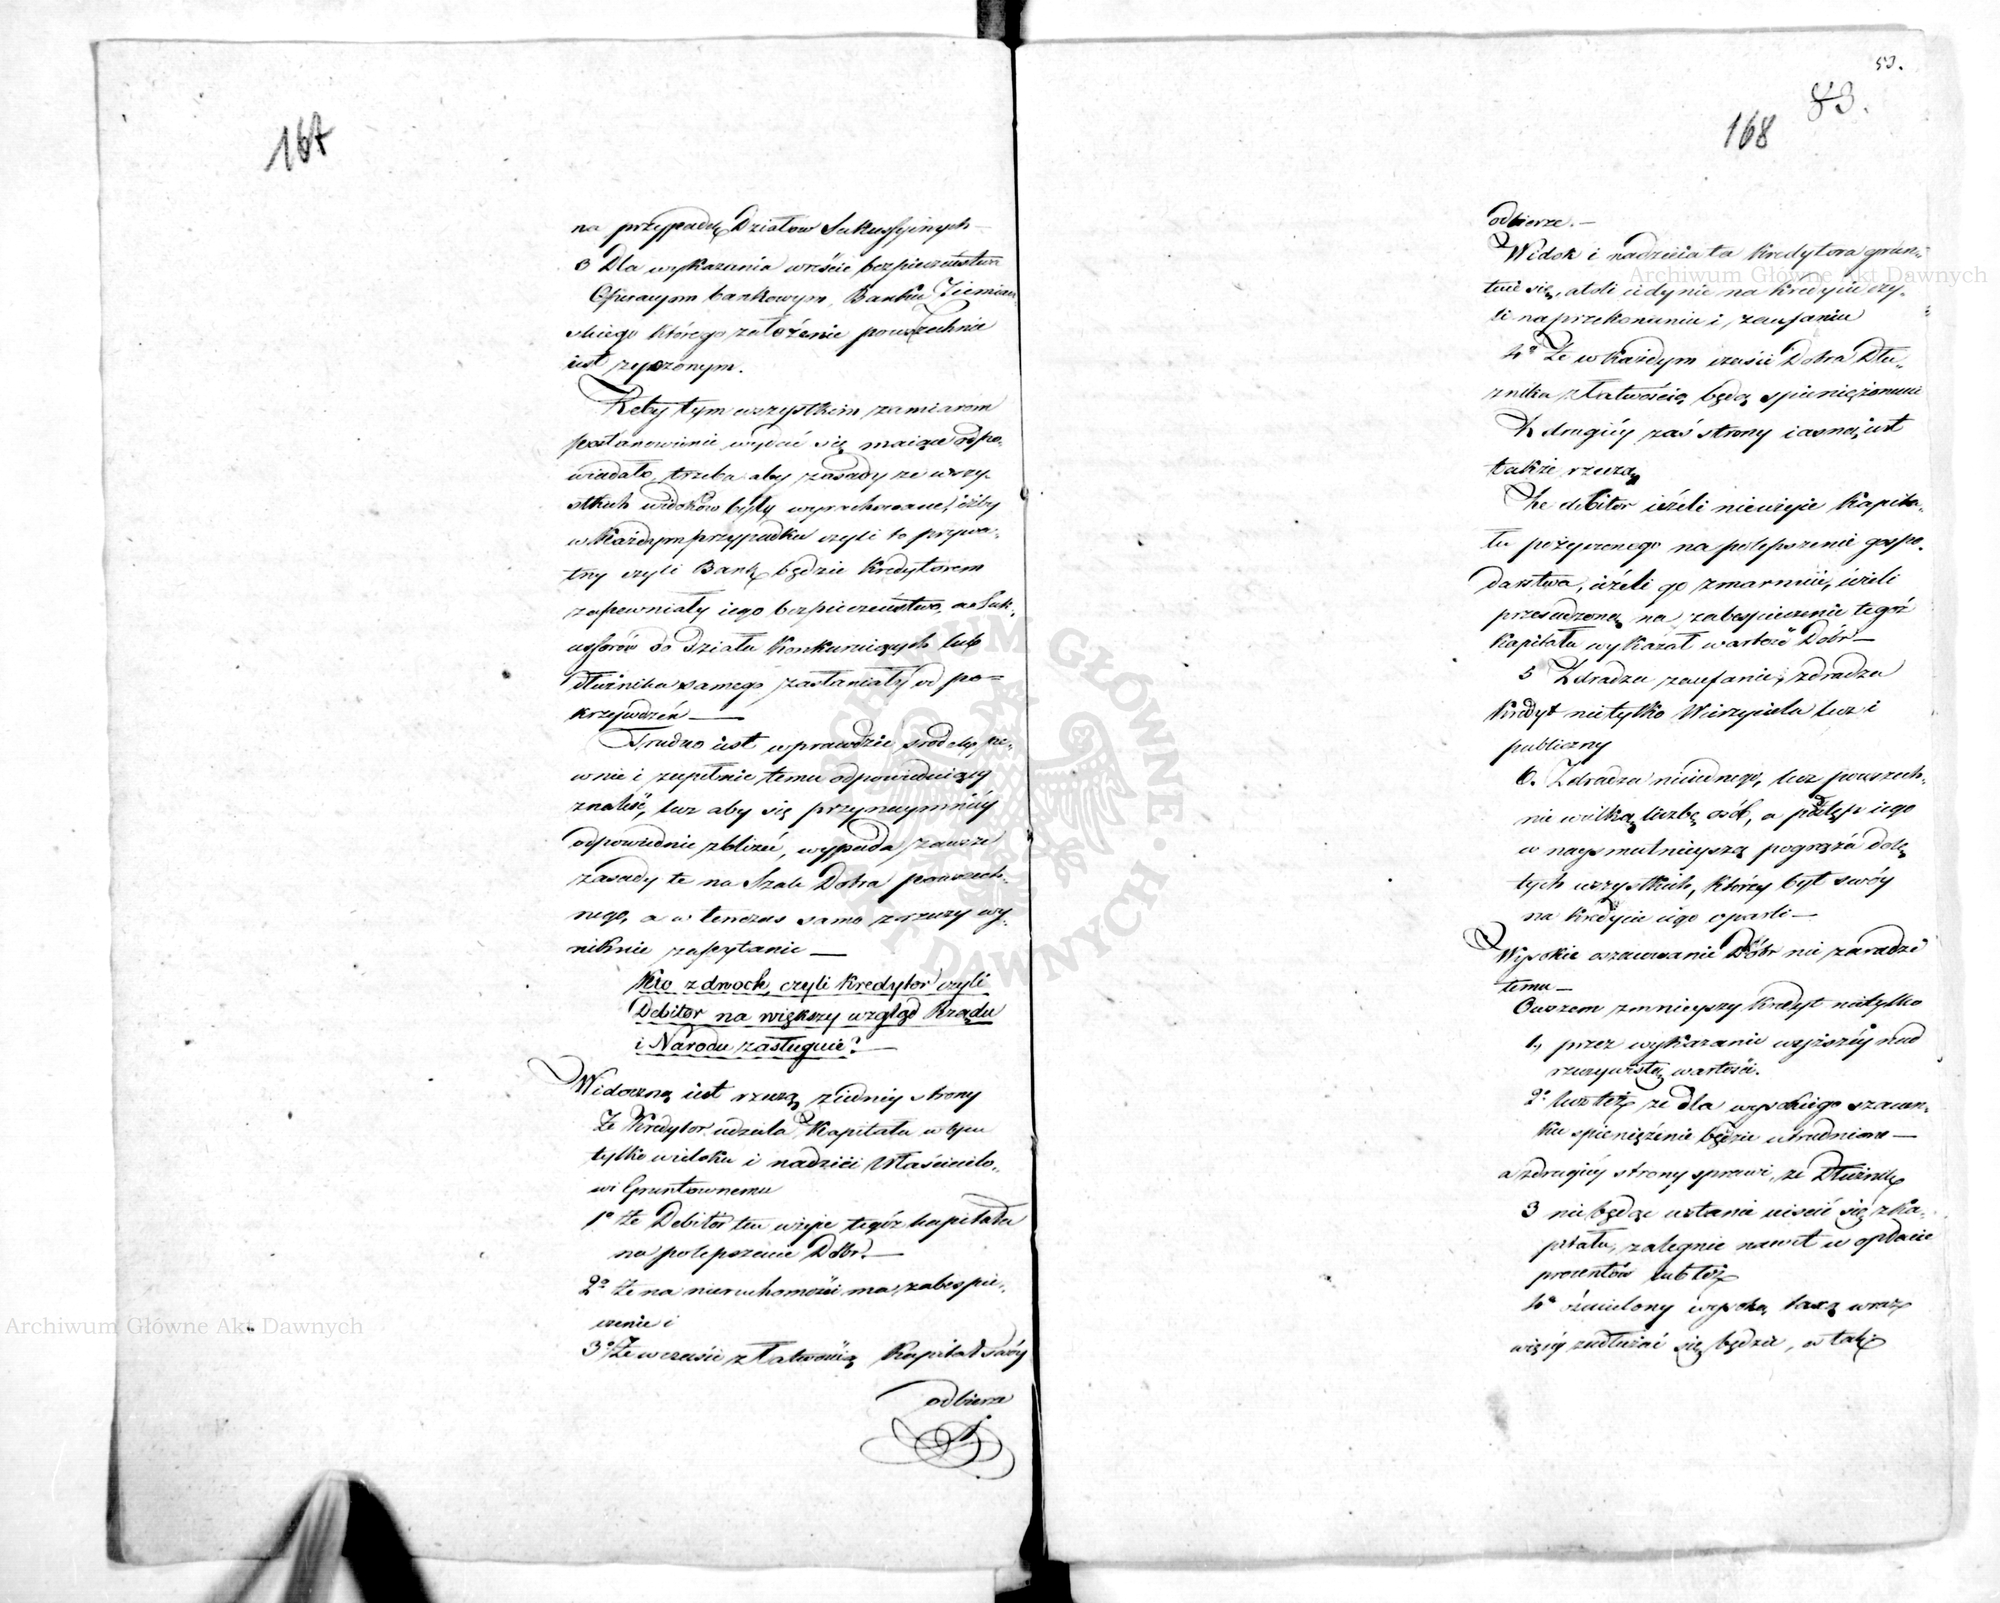 167
na przypadek Działow Sukcessyinych
3 Dla wykazania wreście bezpieczeństwa
Operacyom bankowym, Banku Ziemiań-
skiego którego założenie powszechnie
iest zyczonym.
Żeby tym wszystkim zamiarom
postanowienie wydać się maiące odpo-
wiadało, trzeba aby zasady ze wszy-
stkich widoków były wyrachowane, iżby
w każdym przypadku czyli to prywa-
tny czyli Bank będzie Kredytorem
zapewniały iego bezpieczeństwo, a Suk-
cessorów do działu konkuruiących lub
dłużnika samego zasłaniały od po=
krzywdzeń —
Trudno iest wprawdzie srodek pe-
wnie i zupełnie temu odpowiedaiący
znaleść, lecz aby się przynaymniéy
odpowiednie zbliżać, wypada zawsze
zasady te na Szale Dobra powszech-
nego, a w tenczas samo z rzeczy wy-
niknie zapytanie —
Kto z dwoch, czyli Kredytor czyli
Debitor na większy wzgląd Rządu
i Narodu zasługuie? —
Widoczną iest rzeczą z iedney strony
Że Kredytor udziela Kapitału w tym
tylko widoku i nadziei Właścicielo-
wi Gruntownemu
1° że Debitor ten użyie tegóż kapitału
na polepszenie Dóbr. —
2° że na nieruchomości ma zabespie-
czenie i
3° Że w czasie z łatwością Kapitał swóy
odbierze
53.
83.
168
odbierze. —
Widok i nadzieia ta Kredytora grun-
tuie się, atoli iedynie na kredycie czy-
li na przekonaniu i zaufaniu
4° Że w każdym czasie Dobra Dłu-
żnika z łatwością będą spieniężonemi
Z drugiéy zaś strony iasną iest
także rzeczą
Że debitor ieżeli nieużyie Kapita-
łu pożyczonego na polepszenie gospo-
darstwa, ieżeli go zmarnuie, ieżeli
przesadzoną na zabespieczenie tegóż
Kapitału wykazał wartość Dóbr —
5 Zdradza zaufanie, zdradza
Kredyt nietylko Wierzyciela lecz i
publiczny
6. Zdradza nieiednego, lecz powszech-
nie wielką liczbę osób, a podstęp iego
w naysmutnieyszą pogrąża dolę
tych wszystkich, którzy byt swóy
na kredycie iego oparli —
Wysokie oszacowanie Dóbr nie zaradzi
temu —
Owszem zmnieyszy kredyt nietylko
1, przez wykazanie wyższéy nad
rzeczywistą wartości.
2° lecz też że dla wysokiego szacun-
ku spieniężenie będzie utrudnione —
a z drugiéy strony sprawi, że Dłużnik
3 nie będąc w stanie uiścić się z ka-
pitału, zalegnie nawet w opłacie
procentów lub też
4° ośmielony wysoką taxą wraz
więcéy zadłużać się będzie, a tak